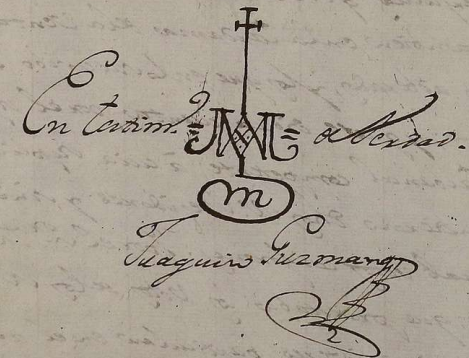 En testim.º de Verdad.
m
Juaquin Guzman